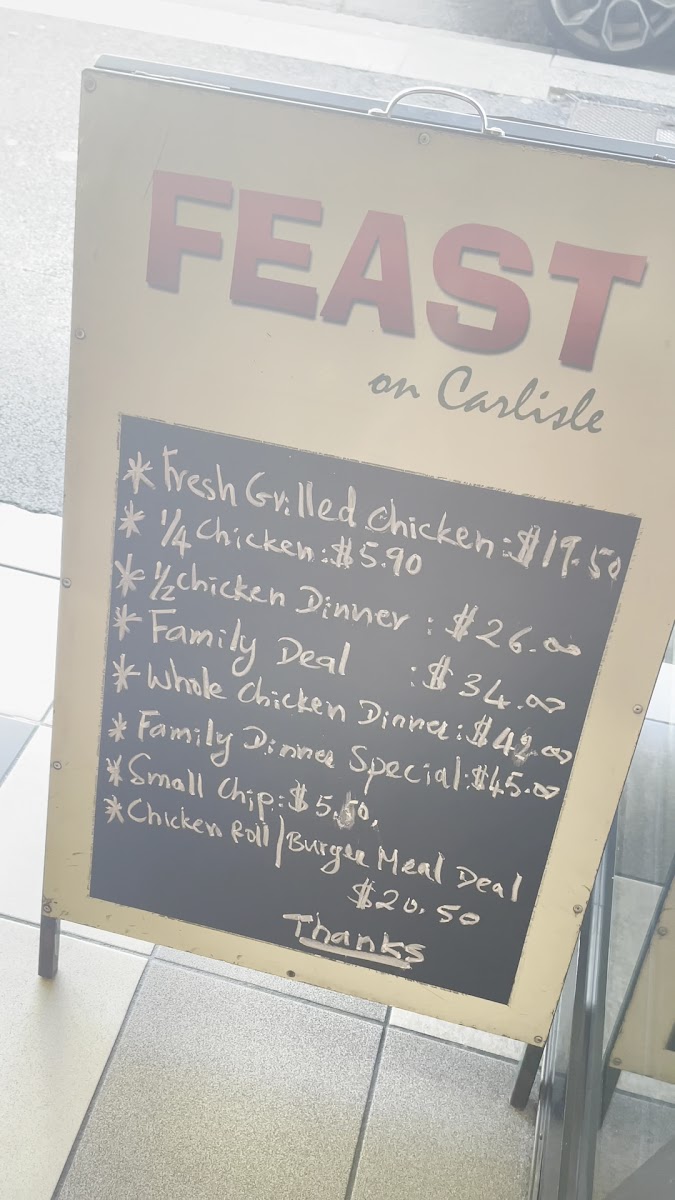 FEAST
on Carlisle
* Fresh Grilled Chicken: $19.50
* 1/4 Chicken: $5.90
* 1/2 chicken Dinner : $26.00
* Family Deal : $34.00
* Whole Chicken Dinner: $42.00
* Family Dinner Special: $45.00
* Small Chip: $5.50.
* Chicken Roll/Burger Meal Deal
$20.50
Thanks